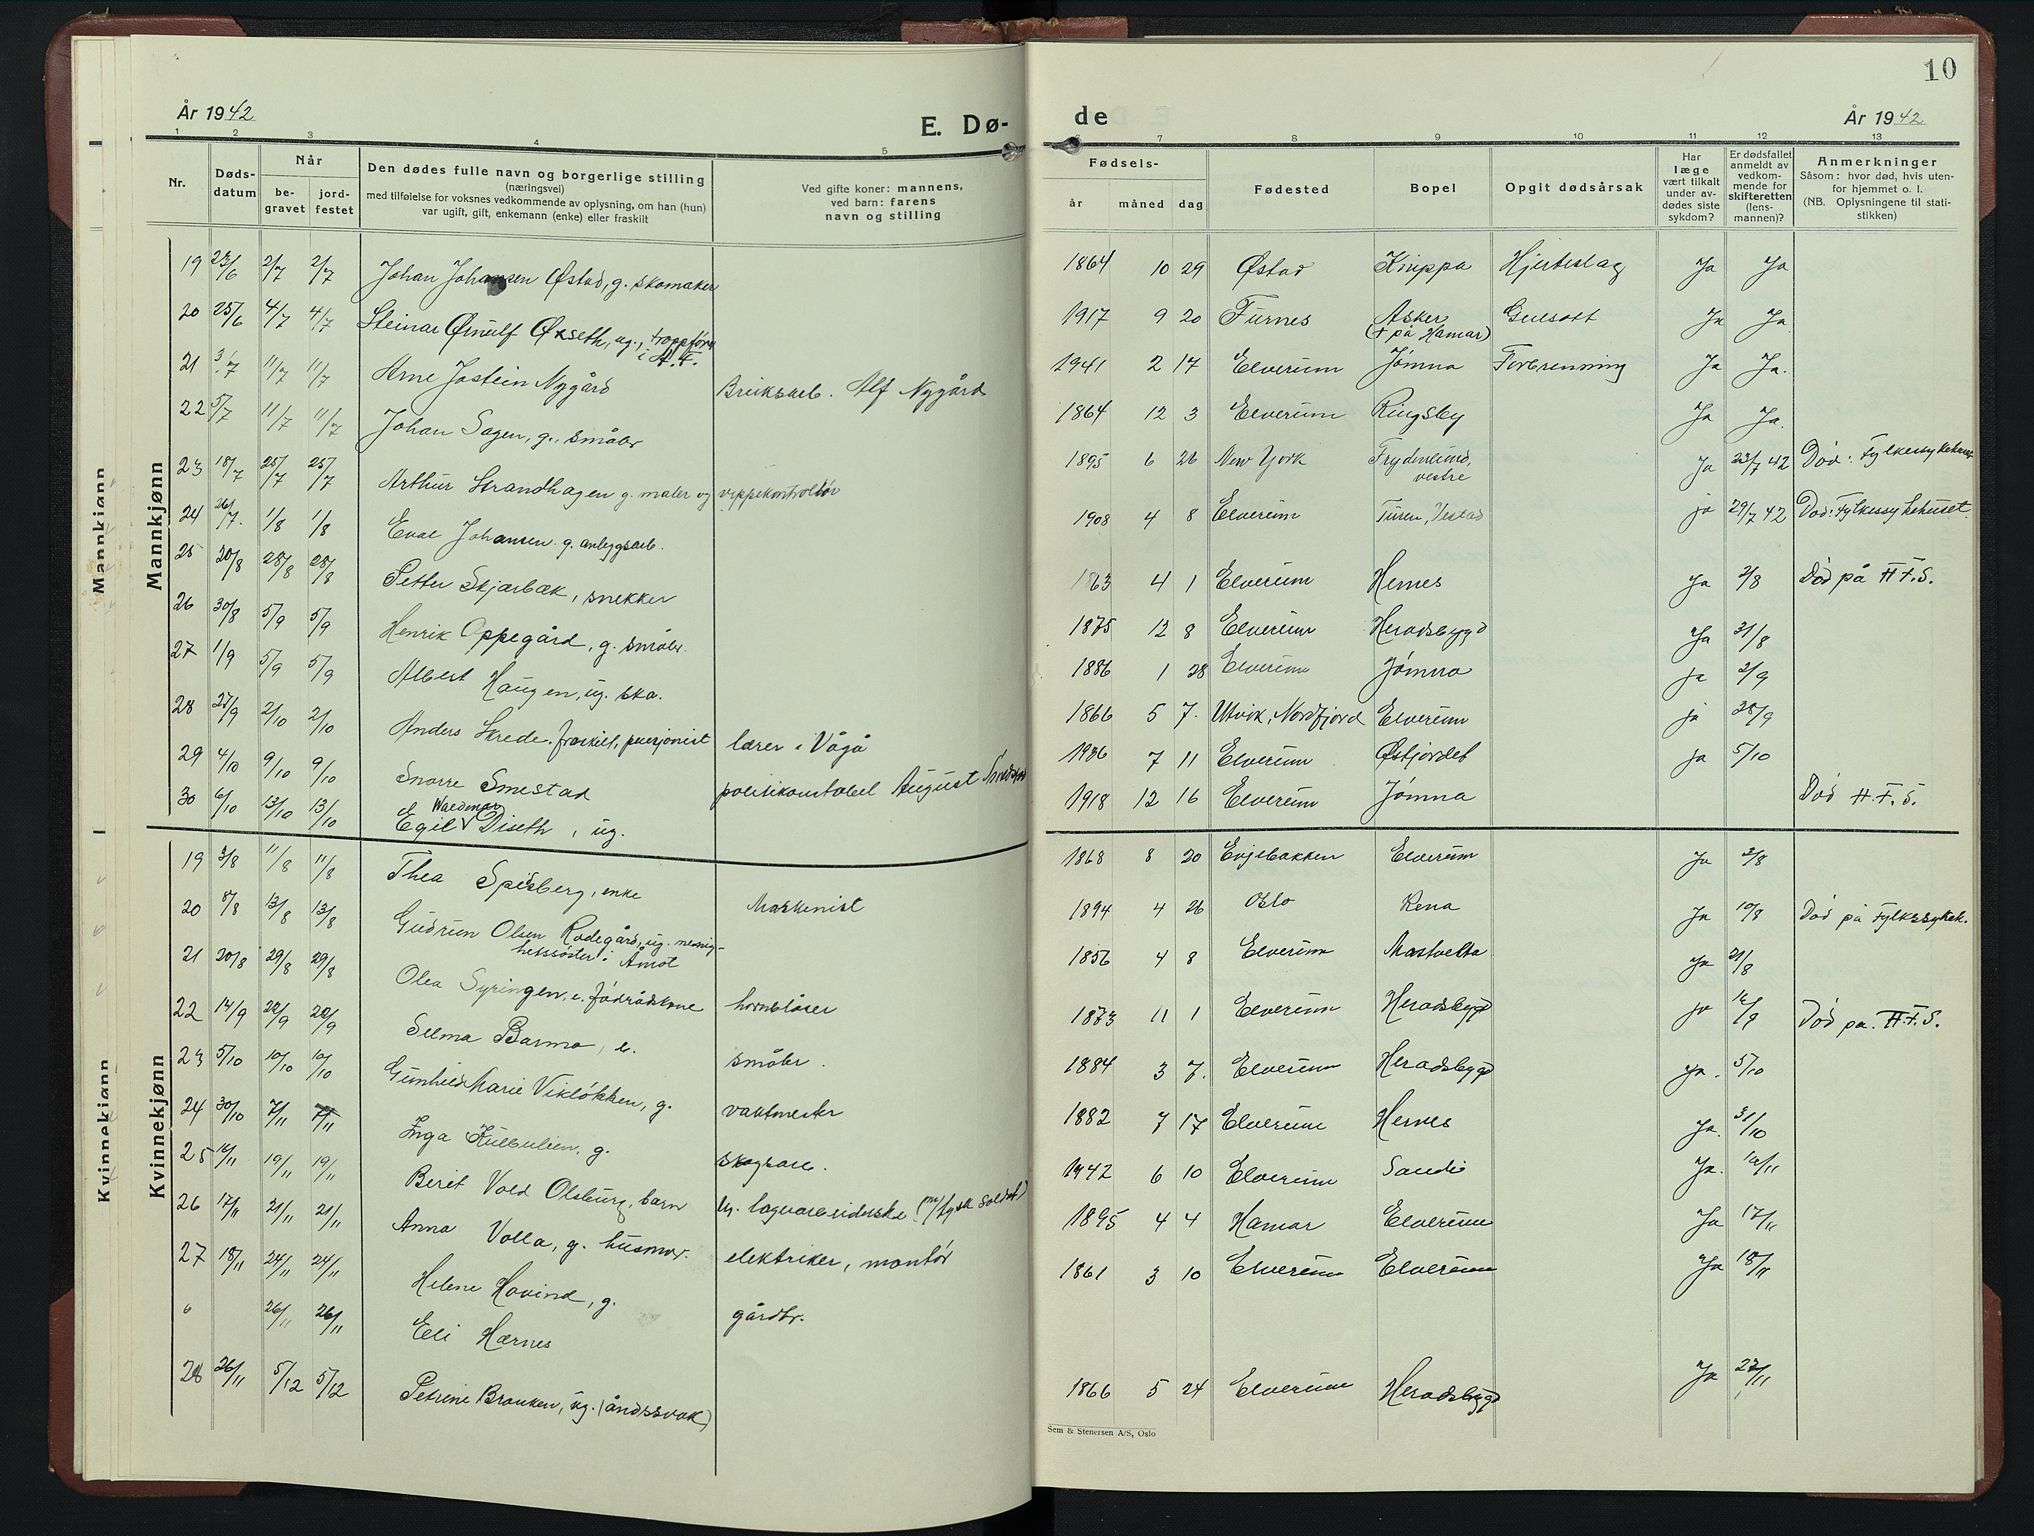 10
År 1942
E. Dø-
de
År 1942
1 2 3 4 5 6 7 8 9 10 11 12 13
Nr.
Døds-
datum
Når
be-
gravet
jord-
festet
Den dødes fulle navn og borgerlige stilling
(næringsvei)
med tilføielse for voksnes vedkommende av oplysning, om han (hun)
var ugift, gift, enkemann (enke) eller fraskilt
Ved gifte koner: mannens,
ved barn: farens
navn og stilling
Fødsels-
år måned dag
Fødested
Bopel
Opgit dødsårsak
Har
læge
vært tilkalt
under av-
dødes siste
sykdom?
Er dødsfallet
anmeldt av
vedkom-
mende for
skifteretten
(lens-
mannen)?
Anmerkninger
Såsom: hvor død, hvis uten-
for hjemmet o. l.
(NB. Oplysningene til stati-
stikken)
Mannkjønn
Mannkjønn
19 23/6 2/7 2/7 Johan Johansen Østad, g. skomaker 1864 10 29 Østad Knippa Hjerteslag Ja Ja
20 25/6 4/7 4/7 Steinar Ørnulf Økseth, ug., troppfører
i A.T. 1917 9 20 Furnes Asker
(+ på Hamar) Gulsott Ja Ja.
21 3/7 11/7 11/7 Arne Jostein Nygård Bruksarb. Alf Nygård 1941 2 17 Elverum Jømna Forbrenning Ja Ja.
22 5/7 11/7 11/7 Johan Sagen, g., småbr 1864 12 3 Elverum Ringsby Ja Ja.
23 18/7 25/7 25/7 Arthur Strandhagen g. maler og vippekontrollør 1895 6 26 New York Frydenlund,
vestre Ja 23/7 42 Død: Fylkessykehus
24 26/7. 1/8 1/8 Eval Johansen. g. anleggsarb. 1908 4 8 Elverum Turen, Vestad ja 29/7 42 Død: Fylkessykehuset.
25 20/8 28/8 28/8 Petter Skjærbæk, snekker 1863 4 1 Elverum Hernes Ja 2/8 Død på H F.S.
26 30/8 5/9 5/9 Henrik Oppegård, g. småbr. 1875 12 8 Elverum Heradsbygd Ja 31/8
27 1/9 5/9 5/9 Albert Haugen, ug. ska. 1886 1 28 Elverum Jømna ja 2/9
28 27/9 2/10 2/10 Anders Skrede. fraskilt, pensjonist lærer i Vågå 1866 5 7. Utvik, Nordfjord Elverum ja 28/9
29 4/10 9/10 9/10 Snorre Smestad politikonstabel August Smestad 1936 7 11 Elverum Østfjordet ja 5/10
30 6/10 13/10 13/10 Egil Waldemar Diseth, ug. 1918 12 16 Elverum Jømna Død H.F.S.
Kvinnekjønn
Kvinnekjønn
19 3/8 11/8 11/8 Thea Spitsberg, enke Maskinist 1868 8 20 Evjebakken Elverum Ja 3/8
20 8/8 13/8 13/8 Gudrun Olsen Rodegård, ug. menig-
hetssøster i Åmot 1894 4 26 Oslo Rena Ja 10/8 Død på Fylkessykeh.
21 20/8 29/8 29/8 Olea Syringen, e. fødrådskone hornblåser 1856 4 8 Elverum Mastvelta Ja 21/8
22 14/9 20/9 20/9 Selma Barmo, e. småbr. 1873 11 1 Elverum Heradsbygd ja 16/9 Død på. H.F.S.
23 5/10 10/10 10/10 Gunhild Marie Vikløkken, g. vaktmester 1884 3 7. Elverum Heradsbygd Ja. 5/10
24 30/10 7/11 7/11 Inga Kulbulien, g. skogsarb. 1882 7 17 Elverum Hernes Ja. 31/10
25 14/11 19/11 19/11 Berit Vold Olsburg, barn ug. lagvarbeiderske (m/tysk soldat) 1942 6 10 Elverum Sandli Ja. 14/11
26 17/11 21/11 21/11 Anna Volla, g. husmor. elektriker, montør 1895 4 4 Hamar Elverum Ja 17/11
27 18/11 24/11 24/11 Helene Hovind, g. gårdbr. 1861 3 10 Elverum Elverum Ja 18/11
6 26/11 26/11 Eli Hernes
28 26/11 5/12 5/12 Petrine Brauken, ug. (åndssvak) 1866 5 24 Elverum Heradsbygd Ja 27/11
Sem & Stenersen A/S, Oslo